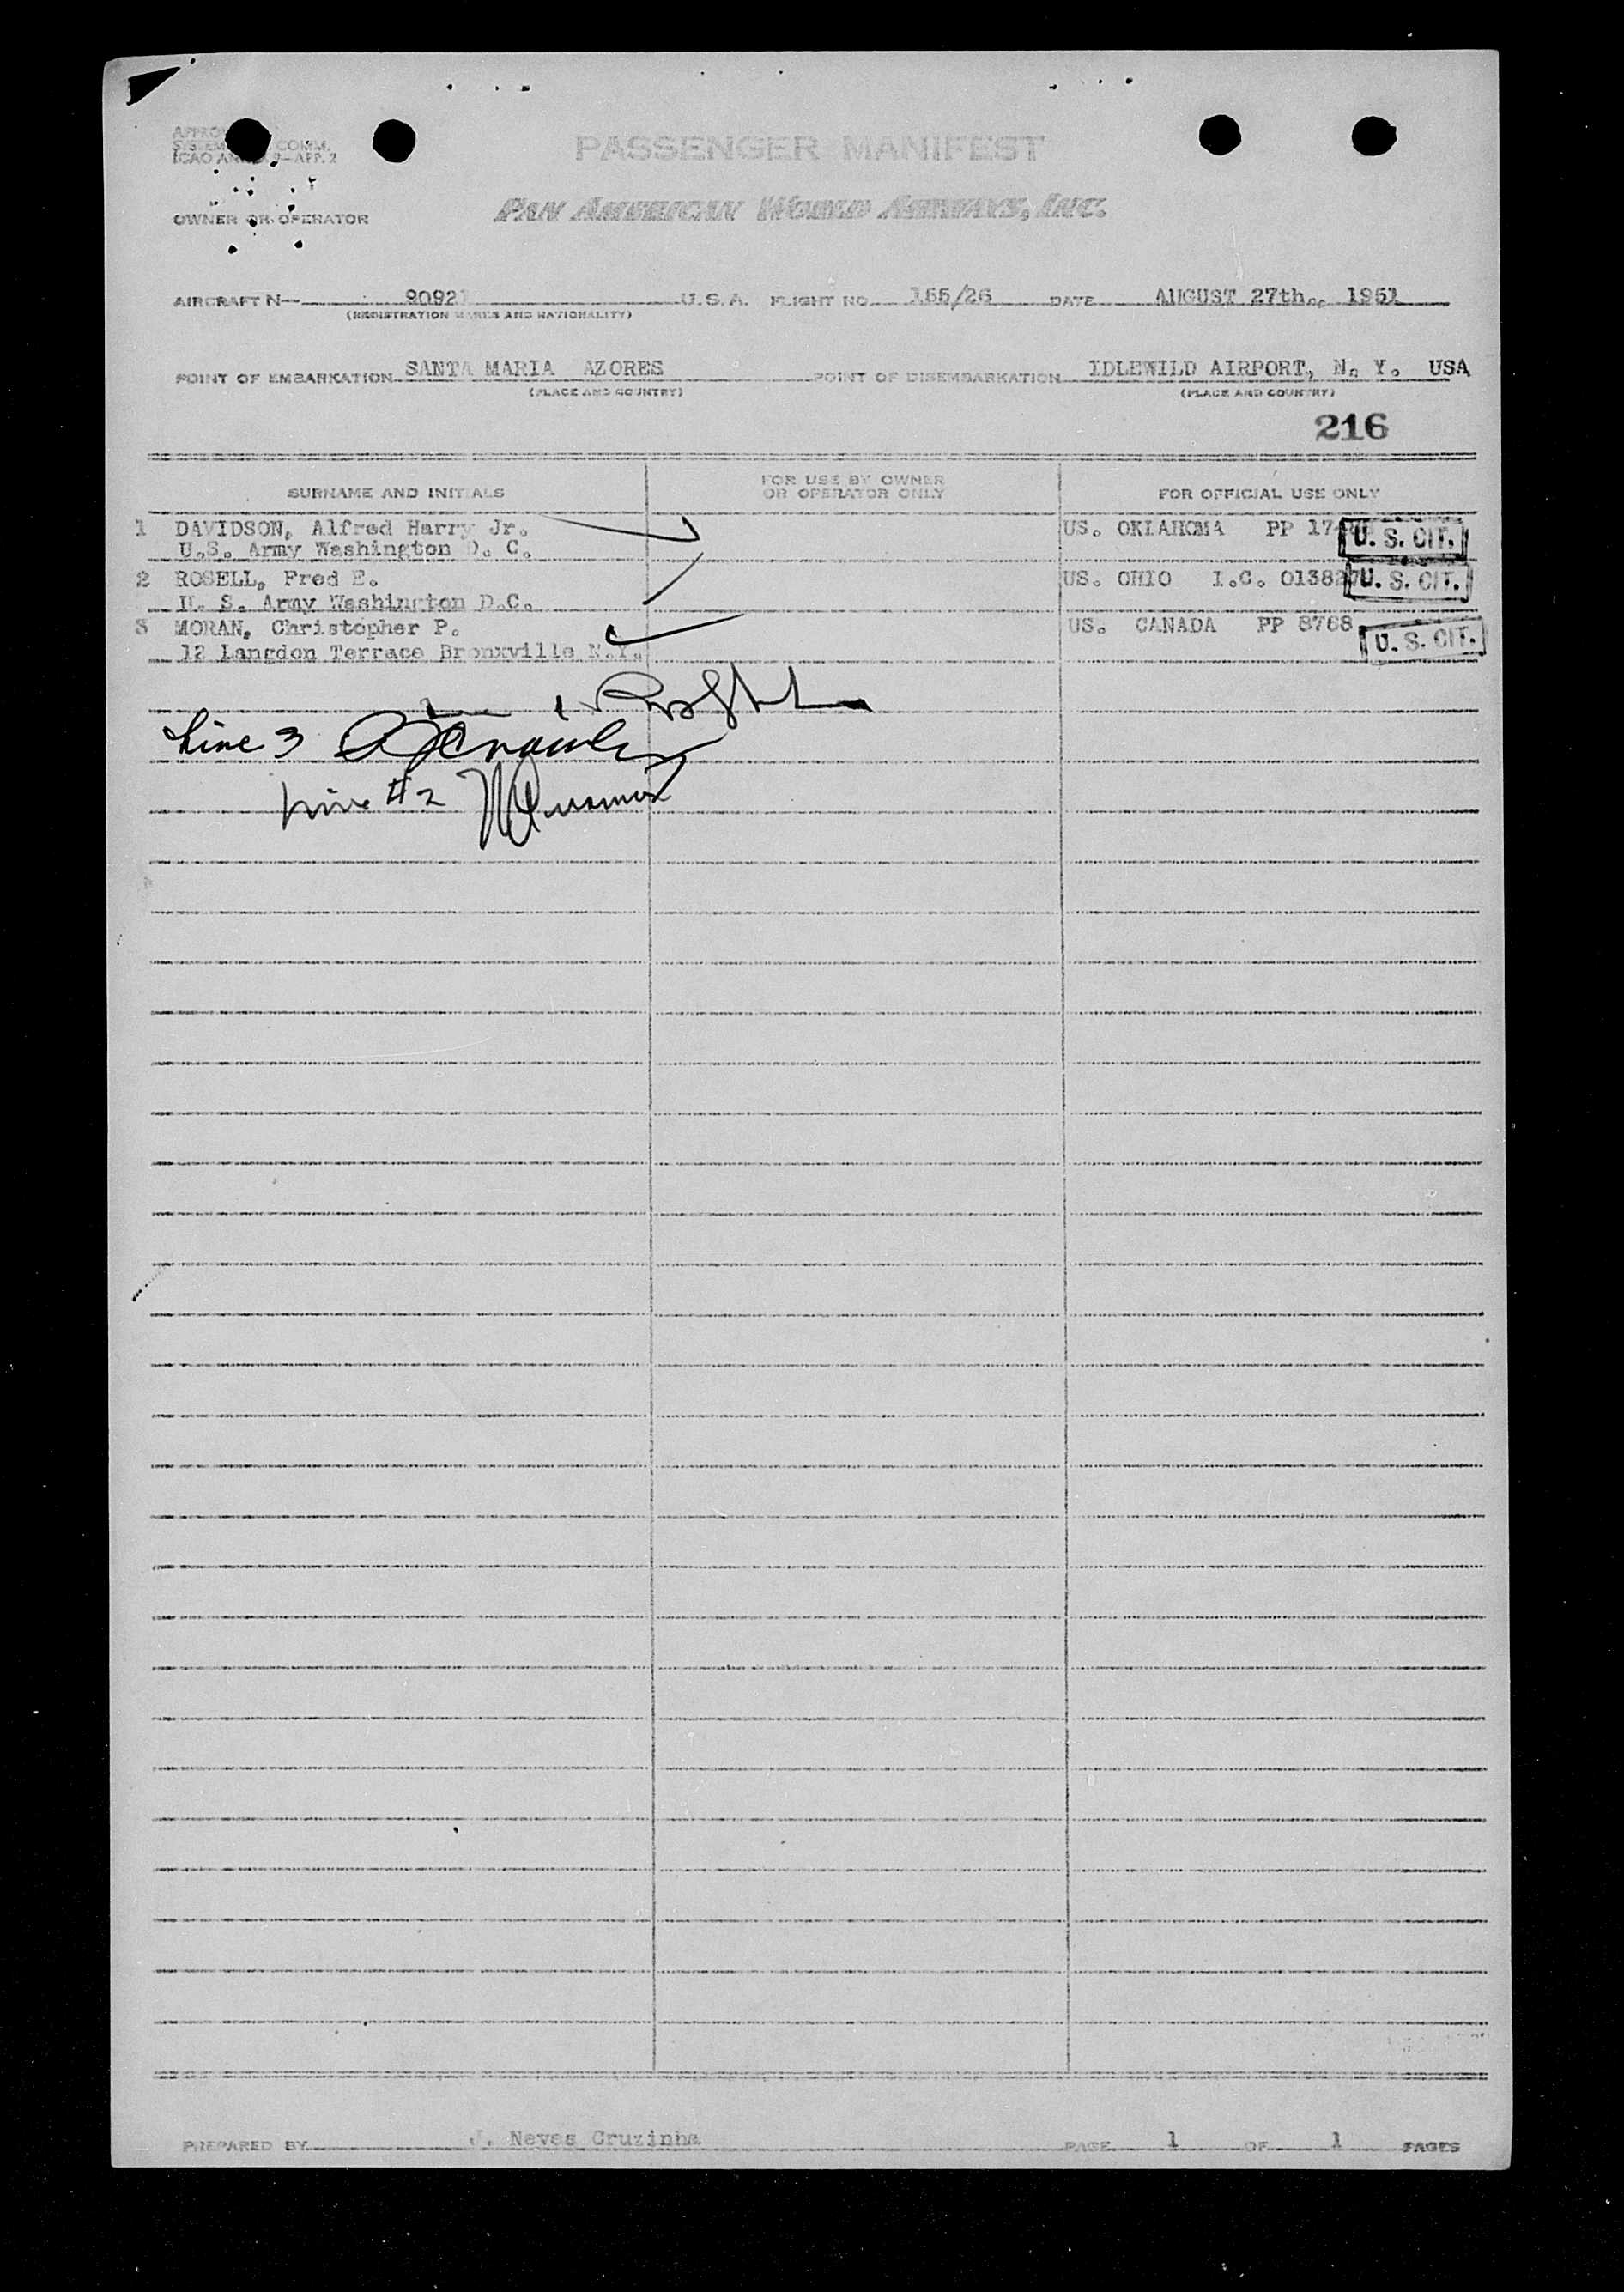 PASSENGER MANIFEST
ICAO
OWNER OR OPERATOR PAN AMERICAN WORLD AIRWAYS, INC.
AIRCRAFT N- 90921 U. S. A. FLIGHT NO. 155/26 DATE AUGUST 27th., 1951
(REGISTRATION MARKS AND NATIONALITY)
POINT OF EMBARKATION SANTA MARIA AZORES POINT OF DISEMBARKATION IDLEWILD AIRPORT, N. Y. USA
(PLACE AND COUNTRY) (PLACE AND COUNTRY)
216
SURNAME AND INITIALS FOR USE BY OWNER OR OPERATOR ONLY FOR OFFICIAL USE ONLY
1 DAVIDSON, Alfred Harry Jr. US. OKLAHOMA PP U. S. CIT.
U.S. Army Washington D. C.
2 ROSELL, Fred E. US. OHIO I.C. U. S. CIT.
U. S. Army Washington D.C.
3 MORAN, Christopher P. US. CANADA PP 8768 U. S. CIT.
12 Langdon Terrace Bronxville N.Y.
Line 3
Line #2
PREPARED BY J. Neves Cruzinha PAGE 1 OF 1 PAGES